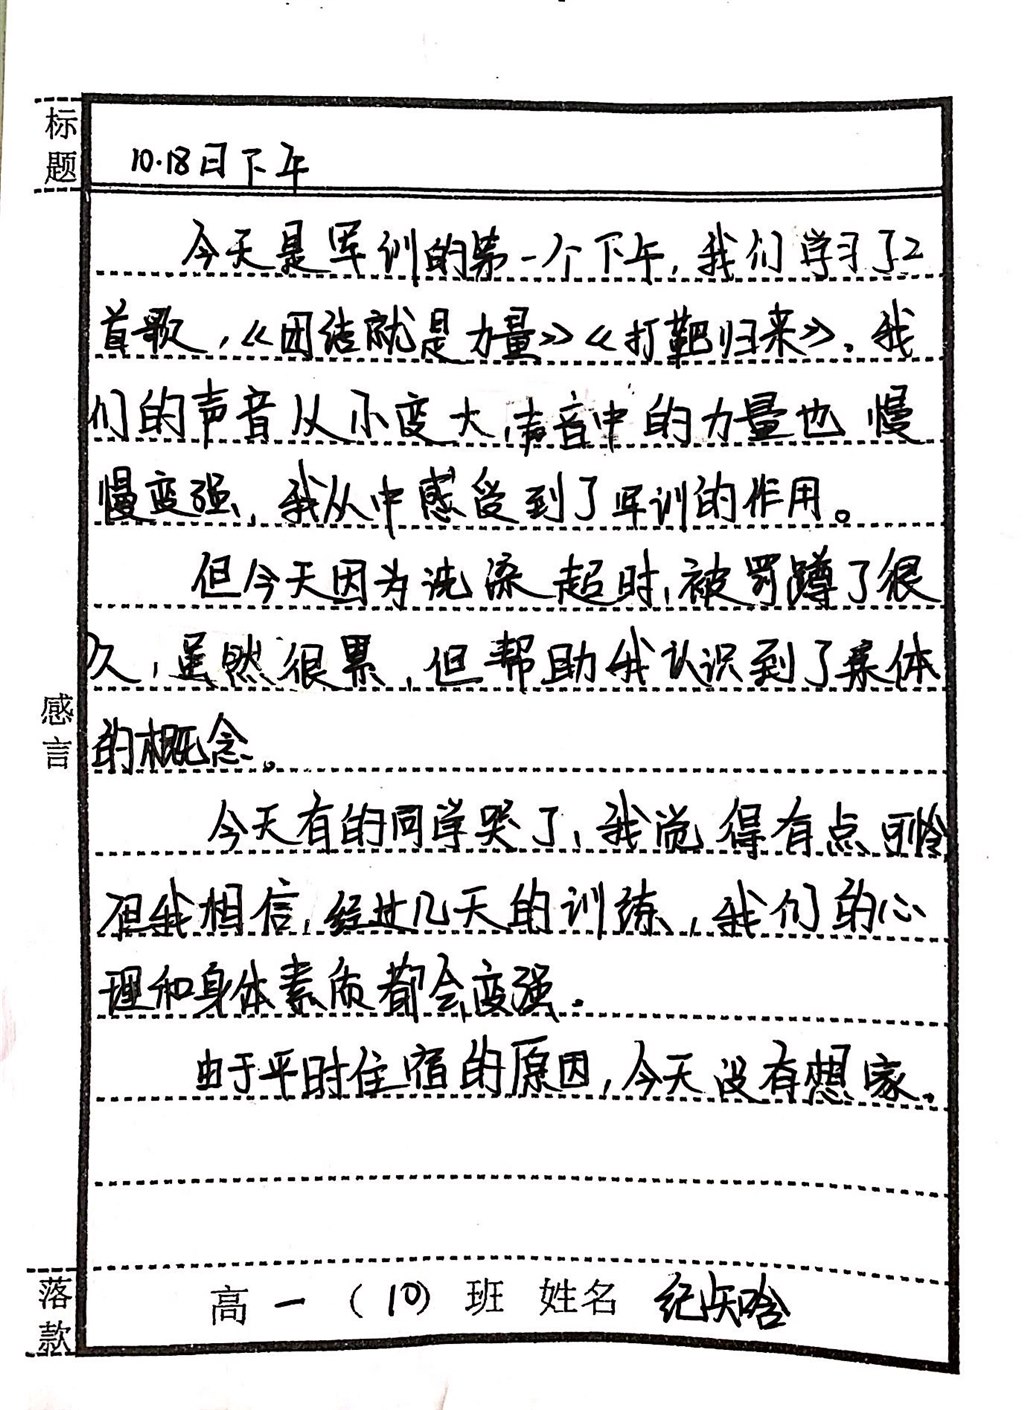 标题
10.18日下午
今天是军训的第一个下午,我们学习了2
首歌,《团结就是力量》《打靶归来》。我
们的声音从小变大,声音中的力量也慢
慢变强,我从中感受到了军训的作用。
但今天因为洗漱超时,被罚蹲了很
久,虽然很累,但帮助我认识到了集体
感言
的概念。
今天有的同学哭了,我觉得有点可怜
但我相信,经过几天的训练,我们的心
理和身体素质都会变强。
由于平时住宿的原因,今天没有想家。
落款
高一(10)班 姓名 纪